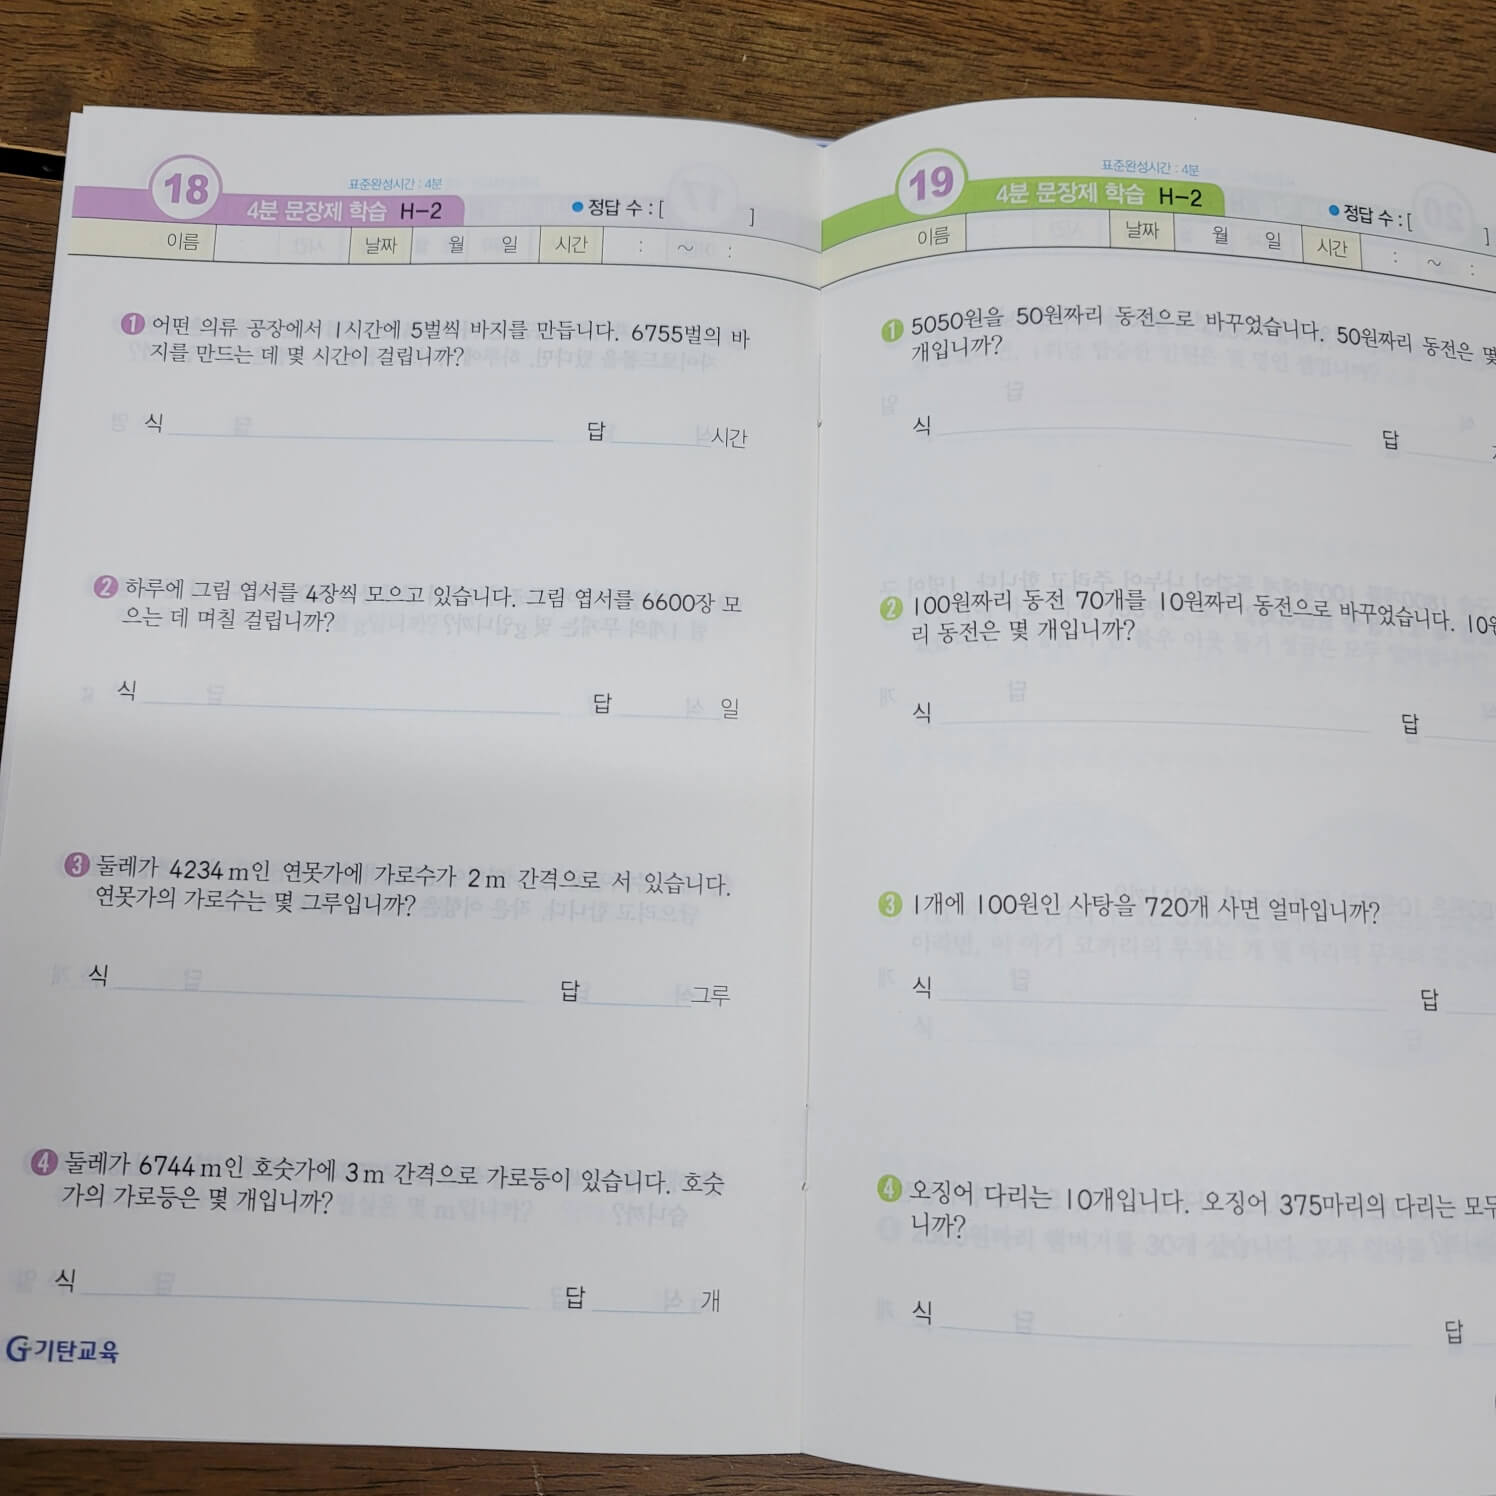 18
표준완성시간 : 4분
4분 문장제 학습 H-2
정답 수 : [ ]
이름 날짜 월 일 시간 : ~ :
1 어떤 의류 공장에서 1시간에 5벌씩 바지를 만듭니다. 6755벌의 바
지를 만드는 데 몇 시간이 걸립니까?
식 답 시간
2 하루에 그림 엽서를 4장씩 모으고 있습니다. 그림 엽서를 6600장 모
으는 데 며칠 걸립니까?
식 답 일
3 둘레가 4234m인 연못가에 가로수가 2m 간격으로 서 있습니다.
연못가의 가로수는 몇 그루입니까?
식 답 그루
4 둘레가 6744m인 호숫가에 3m 간격으로 가로등이 있습니다. 호숫
가의 가로등은 몇 개입니까?
식 답 개
기탄교육
19
표준완성시간 : 4분
4분 문장제 학습 H-2
정답 수 : [ ]
이름 날짜 월 일 시간 : ~ :
1 5050원을 50원짜리 동전으로 바꾸었습니다. 50원짜리 동전은 몇
개입니까?
식 답
2 100원짜리 동전 70개를 10원짜리 동전으로 바꾸었습니다. 10원
리 동전은 몇 개입니까?
식 답
3 1개에 100원인 사탕을 720개 사면 얼마입니까?
식 답
4 오징어 다리는 10개입니다. 오징어 375마리의 다리는 모두
니까?
식 답